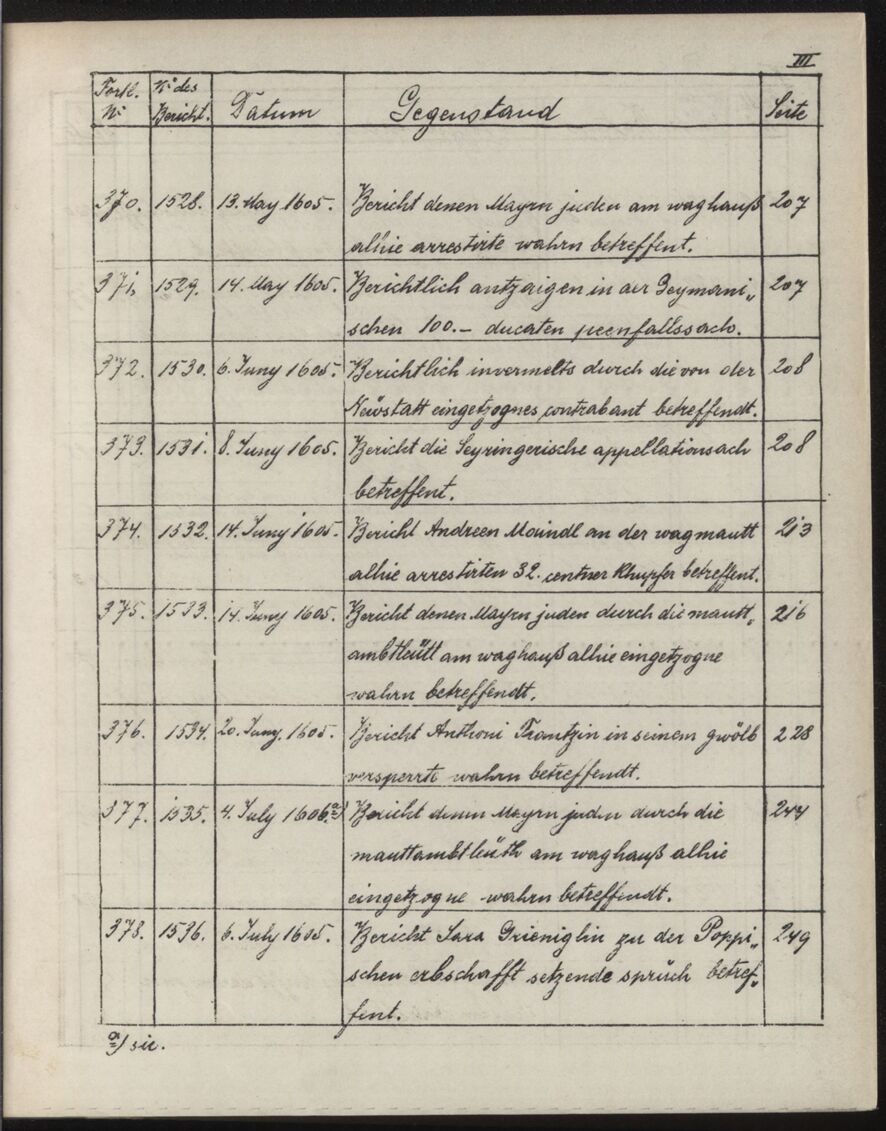 III
Fortl. N° | N° des Bericht. | Datum | Gegenstand | Seite
370. | 1528. | 13. May 1605. | Bericht denen Mayrn juden am waghauß | 207
alhie arrestirte wahrn betreffent.
371. | 1529. | 14. May 1605. | Berichtlich antzaigen in der Geymani„ | 207
schen 100.- ducaten peenfallssach.
372. | 1530. | 6. Juny 1605. | Berichtlich invermelts durch die von der | 208
Neüstatt eingetzognes contrabant betreffendt.
373. | 1531. | 8. Juny 1605. | Bericht die Seyringerische appellationsach | 208
betreffent.
374. | 1532. | 14. Juny 1605. | Bericht Andreen Maindl an der wagmautt | 213
alhie arrestirten 32. centner Khupfer betreffent.
375. | 1533. | 14. Juny 1605. | Bericht denen Mayrn juden durch die mautt„ | 216
ambtleütt am waghauß alhie eingetzogne
wahrn betreffendt.
376. | 1534. | 20. Juny. 1605. | Bericht Anthoni Frantzin in seinem gwölb | 228
versperrte wahrn betreffendt.
377. | 1535. | 4. July 1606. a) | Bericht denen Mayrn juden durch die | 244
mauttambtleüth am waghauß alhie
eingetzogne wahrn betreffendt.
378. | 1536. | 6. July 1605. | Bericht Sara Grieniglin zu der Poppi„ | 249
schen erbschafft setzende sprüch betref„
fent.
a) sic.